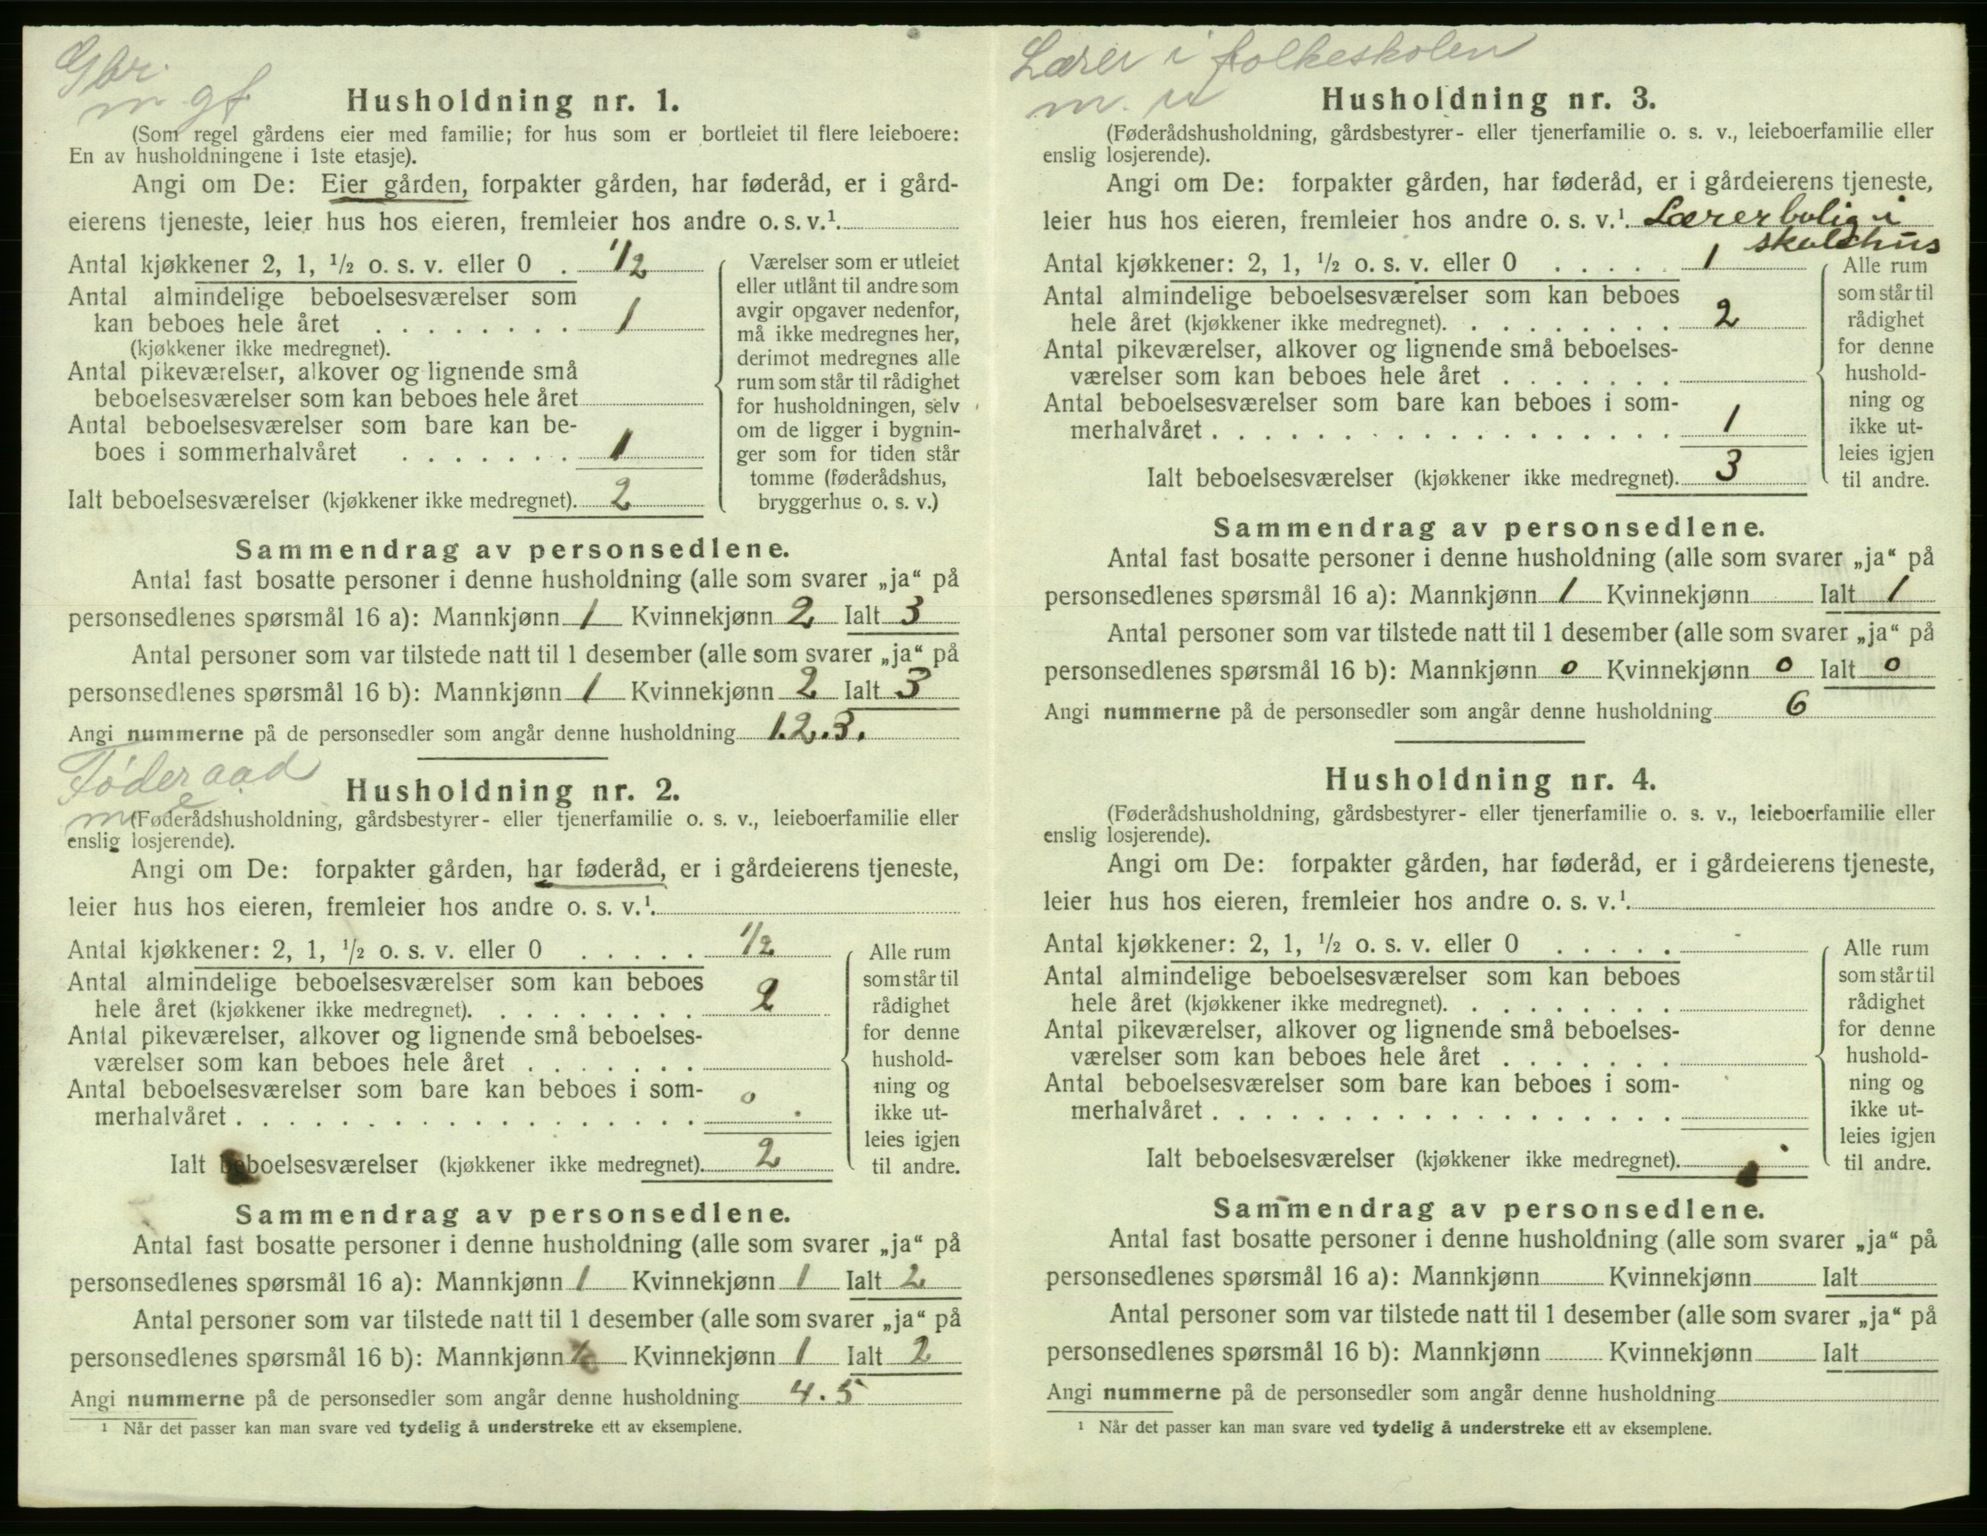 Gbr.
m gf
Husholdning nr. 1.
(Som regel gårdens eier med familie; for hus som er bortleiet til flere leieboere:
En av husholdningene i 1ste etasje).
Angi om De: Eier gården, forpakter gården, har føderåd, er i gård-
eierens tjeneste, leier hus hos eieren, fremleier hos andre o. s. v.¹
Antal kjøkkener 2, 1, ½ o. s. v. eller 0 . ½
Antal almindelige beboelsesværelser som
kan beboes hele året . . . . . . . . 1
(kjøkkener ikke medregnet).
Antal pikeværelser, alkover og lignende små
beboelsesværelser som kan beboes hele året
Antal beboelsesværelser som bare kan be-
boes i sommerhalvåret . . . . . . . 1
Ialt beboelsesværelser (kjøkkener ikke medregnet). 2
Værelser som er utleiet
eller utlånt til andre som
avgir opgaver nedenfor,
må ikke medregnes her,
derimot medregnes alle
rum som står til rådighet
for husholdningen, selv
om de ligger i bygnin-
ger som for tiden står
tomme (føderådshus,
bryggerhus o. s. v.)
Sammendrag av personsedlene.
Antal fast bosatte personer i denne husholdning (alle som svarer „ja“ på
personsedlenes spørsmål 16 a): Mannkjønn 1 Kvinnekjønn 2 Ialt 3
Antal personer som var tilstede natt til 1 desember (alle som svarer „ja“ på
personsedlenes spørsmål 16 b): Mannkjønn 1 Kvinnekjønn 2 Ialt 3
Angi nummerne på de personsedler som angår denne husholdning 1.2.3.
Føderaad
m e
Husholdning nr. 2.
(Føderådshusholdning, gårdsbestyrer- eller tjenerfamilie o. s. v., leieboerfamilie eller
enslig losjerende).
Angi om De: forpakter gården, har føderåd, er i gårdeierens tjeneste,
leier hus hos eieren, fremleier hos andre o. s. v.¹.
Antal kjøkkener: 2, 1, ½ o. s. v. eller 0 . . . . . ½
Antal almindelige beboelsesværelser som kan beboes
hele året (kjøkkener ikke medregnet). . . . . . . . . 2
Antal pikeværelser, alkover og lignende små beboelses-
værelser som kan beboes hele året . . . . . . .
Antal beboelsesværelser som bare kan beboes i som-
merhalvåret . . . . . . . . . . . . . . . . . . 0
Ialt beboelsesværelser (kjøkkener ikke medregnet). 2
Alle rum
som står til
rådighet
for denne
hushold-
ning og
ikke ut-
leies igjen
til andre.
Sammendrag av personsedlene.
Antal fast bosatte personer i denne husholdning (alle som svarer „ja“ på
personsedlenes spørsmål 16 a): Mannkjønn 1 Kvinnekjønn 1 Ialt 2
Antal personer som var tilstede natt til 1 desember (alle som svarer „ja“ på
personsedlenes spørsmål 16 b): Mannkjønn Kvinnekjønn 1 Ialt 2
Angi nummerne på de personsedler som angår denne husholdning 4.5
¹ Når det passer kan man svare ved tydelig å understreke ett av eksemplene.
Lærer i folkeskolen
m. u
Husholdning nr. 3.
(Føderådshusholdning, gårdsbestyrer- eller tjenerfamilie o. s. v., leieboerfamilie eller
enslig losjerende).
Angi om De: forpakter gården, har føderåd, er i gårdeierens tjeneste,
leier hus hos eieren, fremleier hos andre o. s. v.¹. Lærerbolig i
skolehus
Antal kjøkkener: 2, 1, ½ o. s. v. eller 0 . . . . . 1
Antal almindelige beboelsesværelser som kan beboes
hele året (kjøkkener ikke medregnet). . . . . . . . . 2
Antal pikeværelser, alkover og lignende små beboelses-
værelser som kan beboes hele året . . . . . . .
Antal beboelsesværelser som bare kan beboes i som-
merhalvåret . . . . . . . . . . . . . . . . . . 1
Ialt beboelsesværelser (kjøkkener ikke medregnet). 3
Alle rum
som står til
rådighet
for denne
hushold-
ning og
ikke ut-
leies igjen
til andre.
Sammendrag av personsedlene.
Antal fast bosatte personer i denne husholdning (alle som svarer „ja“ på
personsedlenes spørsmål 16 a): Mannkjønn 1 Kvinnekjønn Ialt 1
Antal personer som var tilstede natt til 1 desember (alle som svarer „ja“ på
personsedlenes spørsmål 16 b): Mannkjønn 0 Kvinnekjønn 0 Ialt 0
Angi nummerne på de personsedler som angår denne husholdning 6
Husholdning nr. 4.
(Føderådshusholdning, gårdsbestyrer- eller tjenerfamilie o. s. v., leieboerfamilie eller
enslig losjerende).
Angi om De: forpakter gården, har føderåd, er i gårdeierens tjeneste,
leier hus hos eieren, fremleier hos andre o. s. v.¹.
Antal kjøkkener: 2, 1, ½ o. s. v. eller 0 . . . . .
Antal almindelige beboelsesværelser som kan beboes
hele året (kjøkkener ikke medregnet). . . . . . . . .
Antal pikeværelser, alkover og lignende små beboelses-
værelser som kan beboes hele året . . . . . . .
Antal beboelsesværelser som bare kan beboes i som-
merhalvåret . . . . . . . . . . . . . . . . . .
Ialt beboelsesværelser (kjøkkener ikke medregnet).
Alle rum
som står til
rådighet
for denne
hushold-
ning og
ikke ut-
leies igjen
til andre.
Sammendrag av personsedlene.
Antal fast bosatte personer i denne husholdning (alle som svarer „ja“ på
personsedlenes spørsmål 16 a): Mannkjønn Kvinnekjønn Ialt
Antal personer som var tilstede natt til 1 desember (alle som svarer „ja“ på
personsedlenes spørsmål 16 b): Mannkjønn Kvinnekjønn Ialt
Angi nummerne på de personsedler som angår denne husholdning
¹ Når det passer kan man svare ved tydelig å understreke ett av eksemplene.